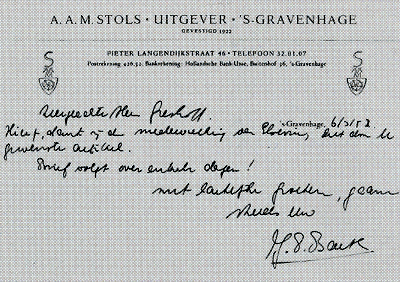 A.A.M. STOLS · UITGEVER · 'S-GRAVENHAGE
GEVESTIGD 1922
PIETER LANGENDIJKSTRAAT 46 · TELEFOON 32.01.07
Postrekening 426.52. Bankrekening: Hollandsche Bank-Unie, Buitenhof 36, 's-Gravenhage
'S-Gravenhage, 6/3/52
Hierbij, dank zij de medewerking van
gewenste artikel.
Brief volgt over enkele dagen!
met hartelijke groeten, gaarne
steeds Uw